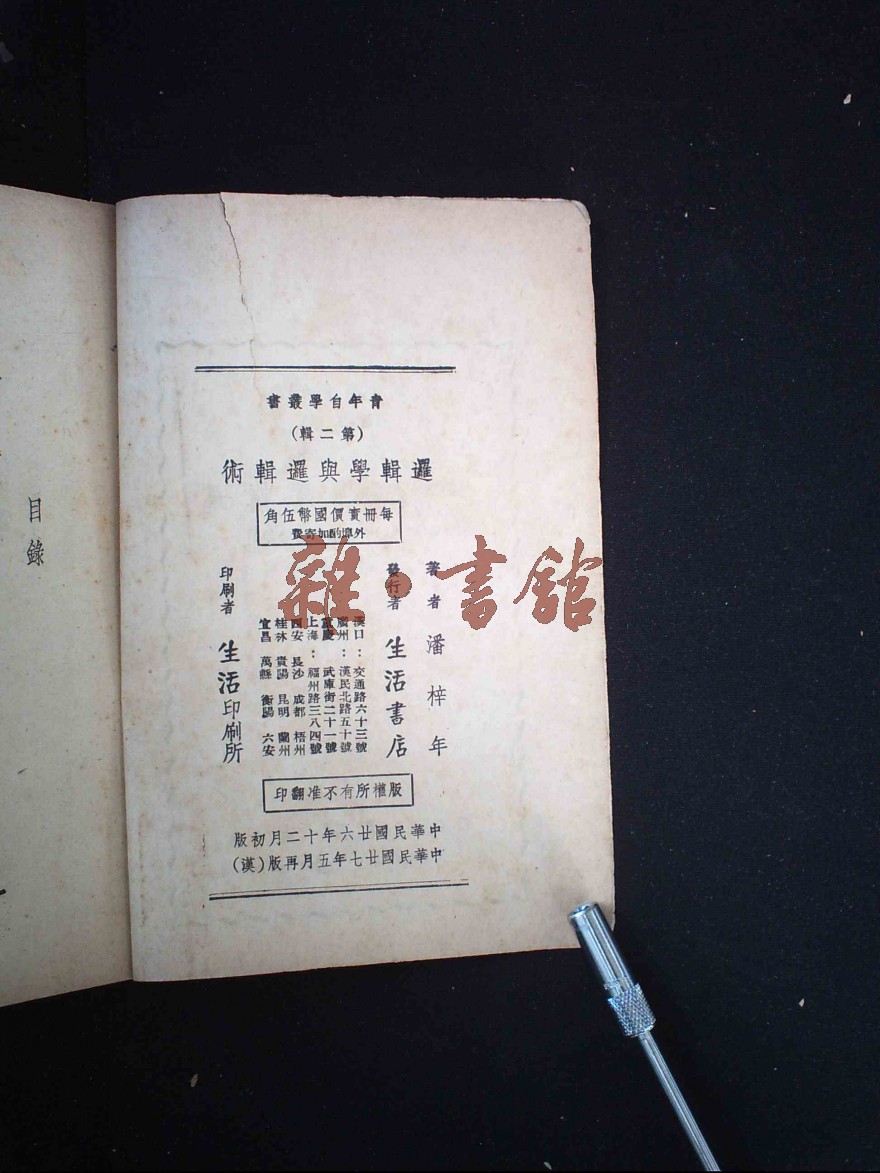 青年自學叢書
(第二輯)
邏輯學與邏輯術
每冊實價國幣伍角
外埠酌加寄費
著者 潘梓年
發行者 生活書店
漢口：交通路六十三號
廣州：漢民北路五十號
重慶 武庫街二十一號
上海：福州路三八四號
西安 長沙 成都 梧州
桂林 貴陽 昆明 蘭州
宜昌 萬縣 衡陽 六安
印刷者 生活印刷所
版權所有不准翻印
中華民國廿六年十二月初版
中華民國廿七年五月再版(漢)
目錄
雜·書館